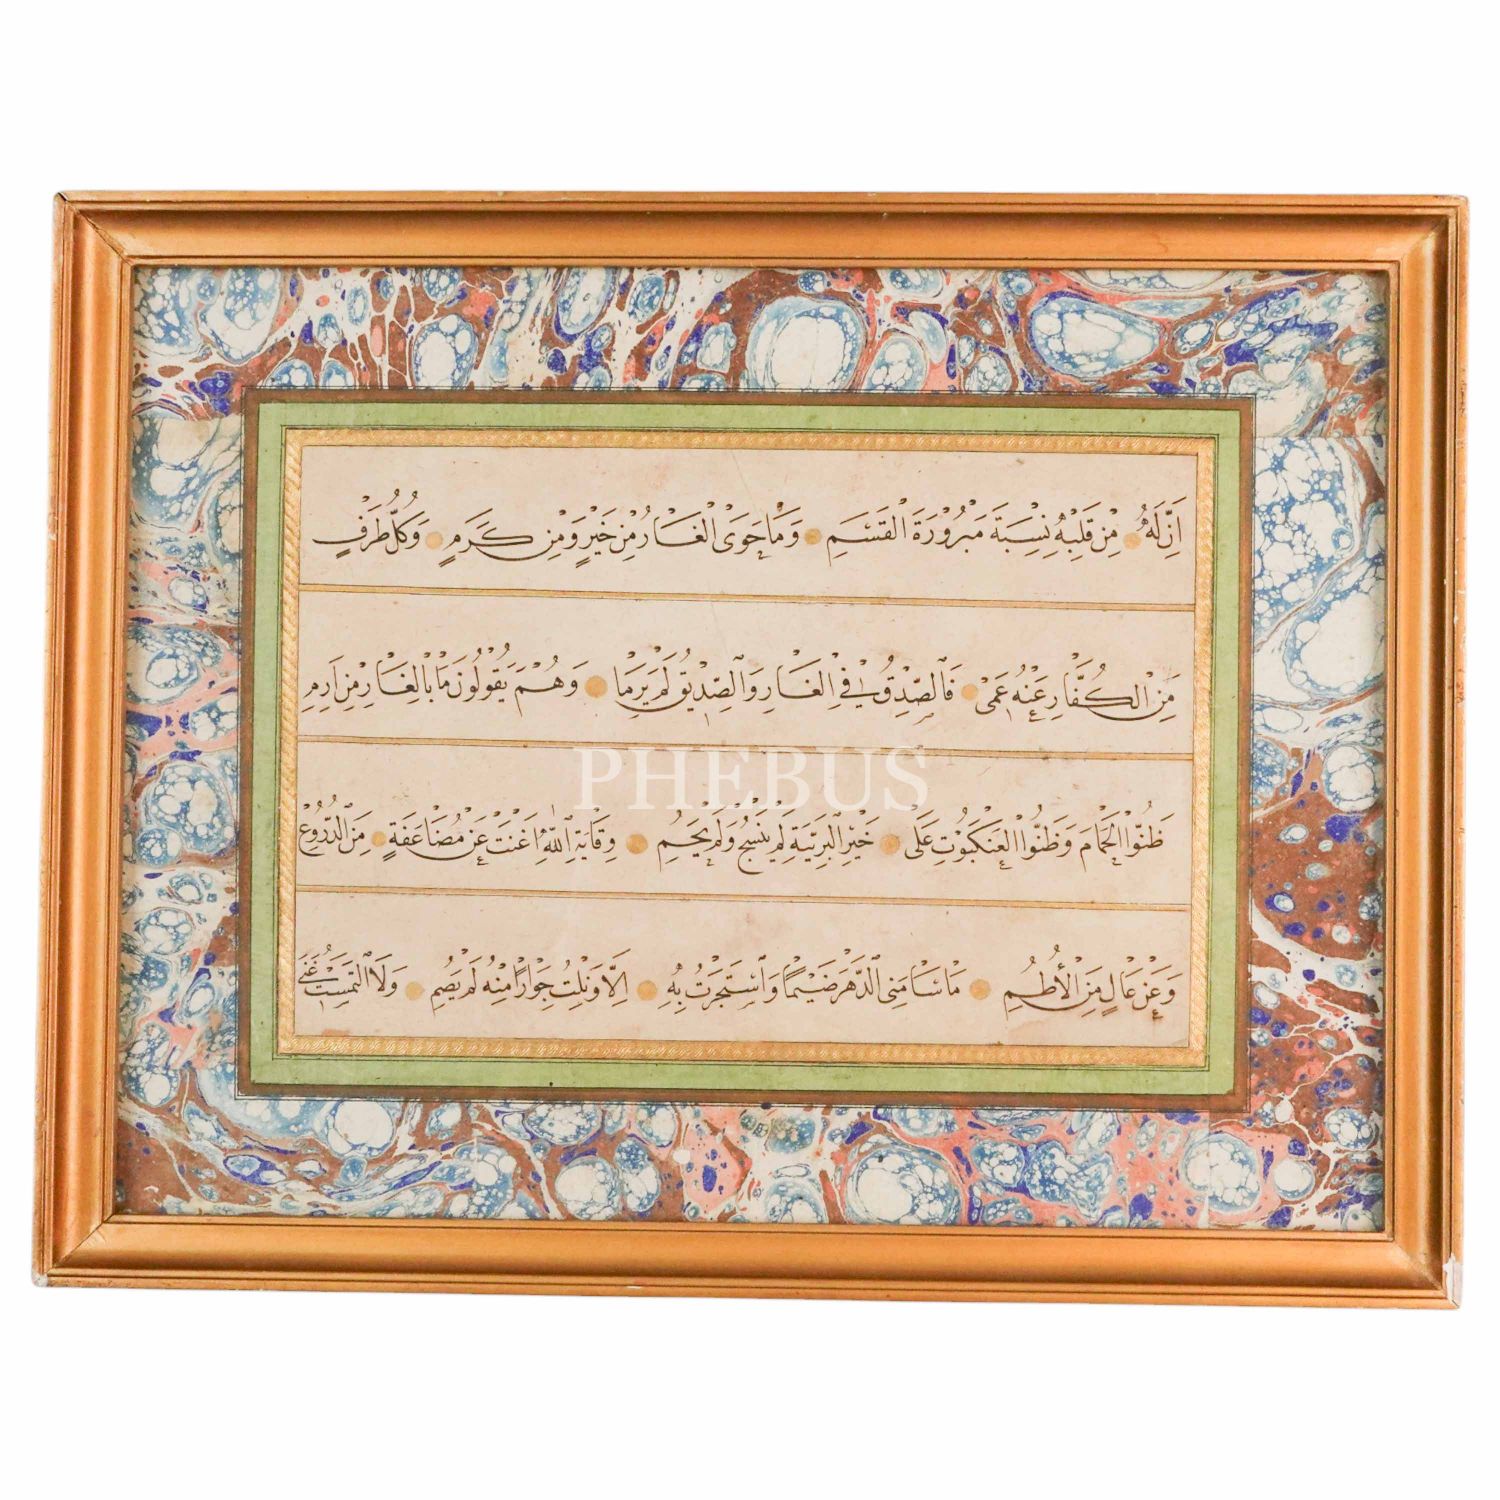 اِنَّ لَهُ مِنْ قَلْبِهِ نِسْبَةً مَبْرُورَةَ الْقَسَمِ وَمَا حَوَى الْغَارُ مِنْ خَيْرٍ وَمِنْ كَرَمٍ وَكُلُّ طَرْفٍ
مِنَ الْكُفَّارِ عَنْهُ عَمِىْ فَالصِّدْقُ فِي الْغَارِ وَالصِّدِّيقُ لَمْ يَرِمَا وَهُمْ يَقُولُونَ مَا بِالْغَارِ مِنْ اَرِمِ
ظَنُّوا الْحَمَامَ وَظَنُّوا الْعَنْكَبُوتَ عَلَى خَيْرِ الْبَرِيَّةِ لَمْ يَنْسُجْ وَلَمْ يَحُمِ وِقَايَةُ اللّٰهِ اَغْنَتْ عَنْ مُضَاعَفَةٍ مِنَ الدُّرُوعِ
وَعَنْ عَالٍ مِنَ الْأُطُمِ مَا سَامَنِى الدَّهْرُ ضَيْمًا وَاسْتَجَرْتُ بِهِ اِلَّا وَنِلْتُ جِوَارًا مِنْهُ لَمْ يُضَمِ وَلَا الْتَمَسْتُ غِنَى
PHEBUS